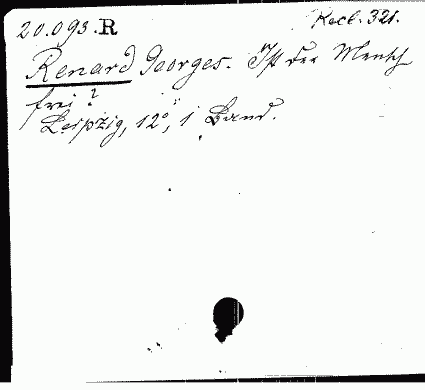 20.093.R Recl. 321.
Renard Georges. Ist der Mensch
frei?
Leipzig, 12°, 1 Band.